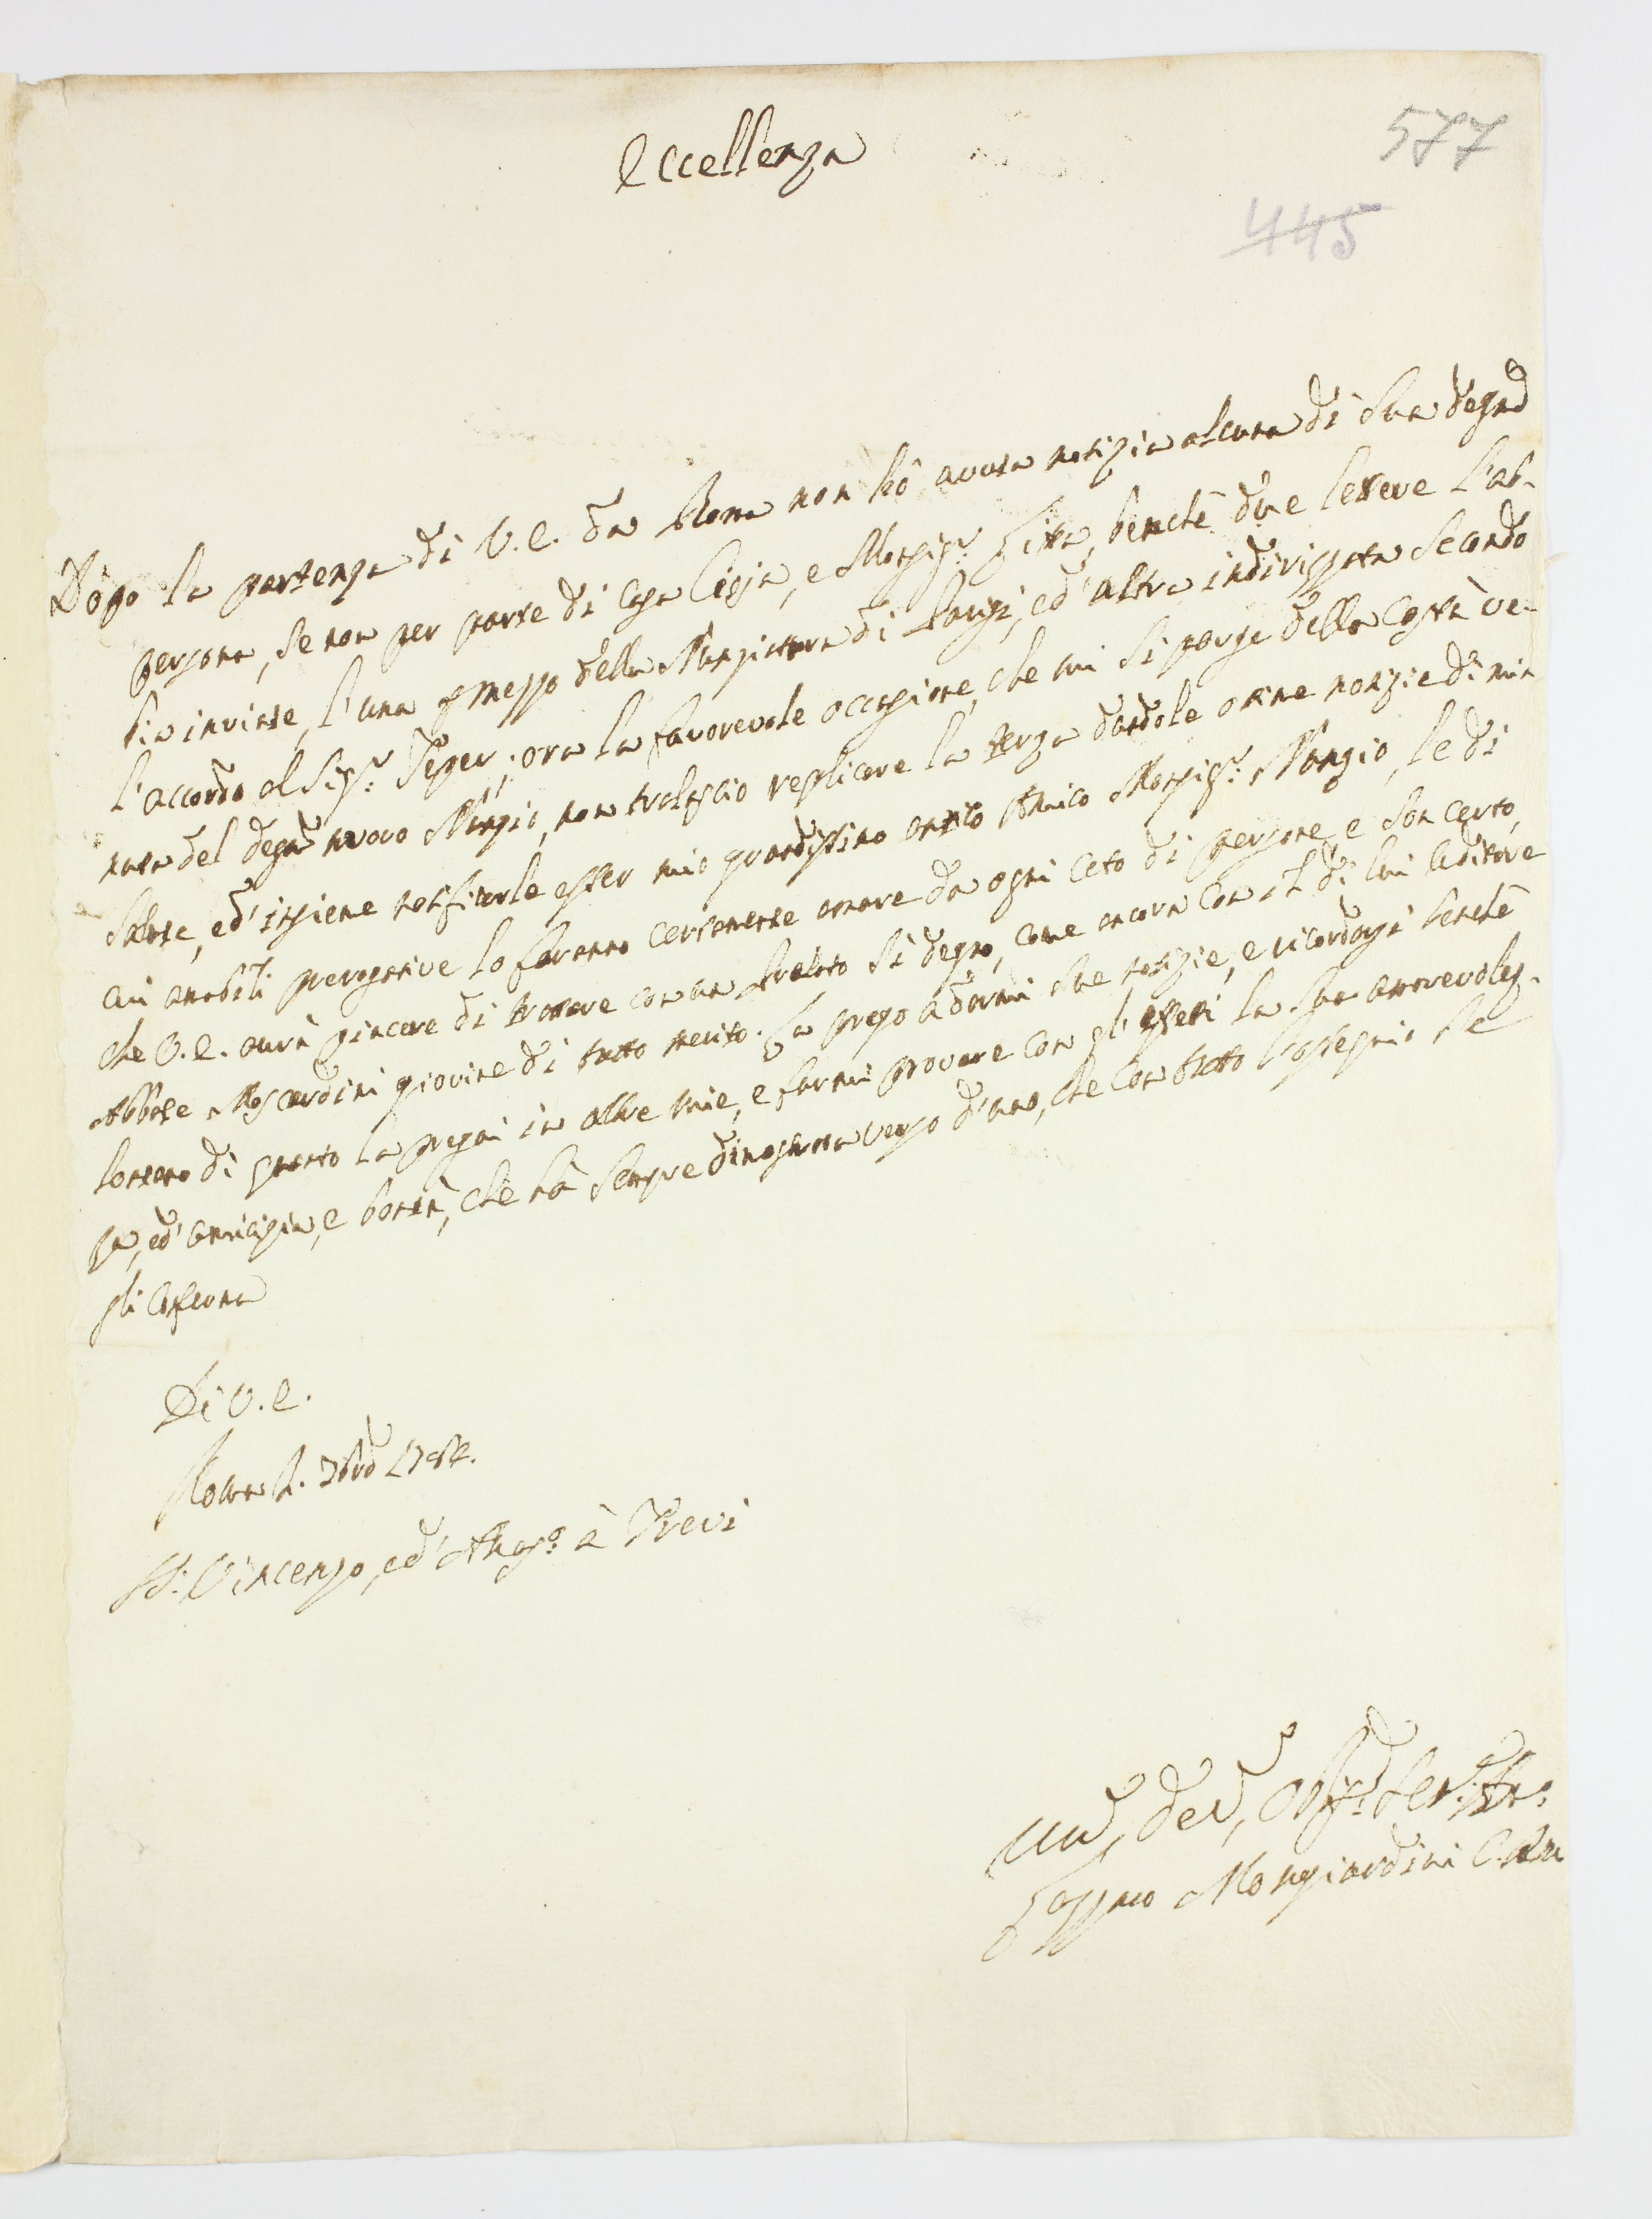 Eccellenza
577
445
Dopo la partenza di V. E. da Roma non hò avuta notizia alcuna di Sua degnã
persona, se non per parte di Casa Cioja, e Monsigr. Zitta, benchè due lettere l'ab-
bia inviate, l'una p mezzo della Nunziatura di Parigi, ed' altra indirizzata secondo
l'accordo al Sigr: Seger; ora la favorevole occasione, che mi si porge della costà ve-
nuta del degnõ nuovo Nunzio, non tralascio replicare la terza dandole ottime notizie di mia
salute, ed' insieme notificarle esser mio grandissimo antico Amico Monsigr: Nunzio, le di
cui amabili prerogative lo faranno certamente amare da ogni ceto di persone, e son certo,
che V. E. avrà piacere di trattare con un Prelato sì degno, come ancora con il di lui Uditore
Abbate Moscardini giovine di tutto merito. La prego a darmi sue notizie, e ricordarsi benchè
lontano di quanto la pregai in altre mie, e farmi provare con gl' effetti la sua amorevolez-
za, ed' amicizia, e bontà, che hà sempre dimostrata verso d' uno, che con tutto l'ossequio se
gli conferma
Di V. E.
Roma 7bre
SS. Vincenzo, ed' Anaso: à Trevi
Umõ, Devõ, Obbgõ Ser:
Mongiardini